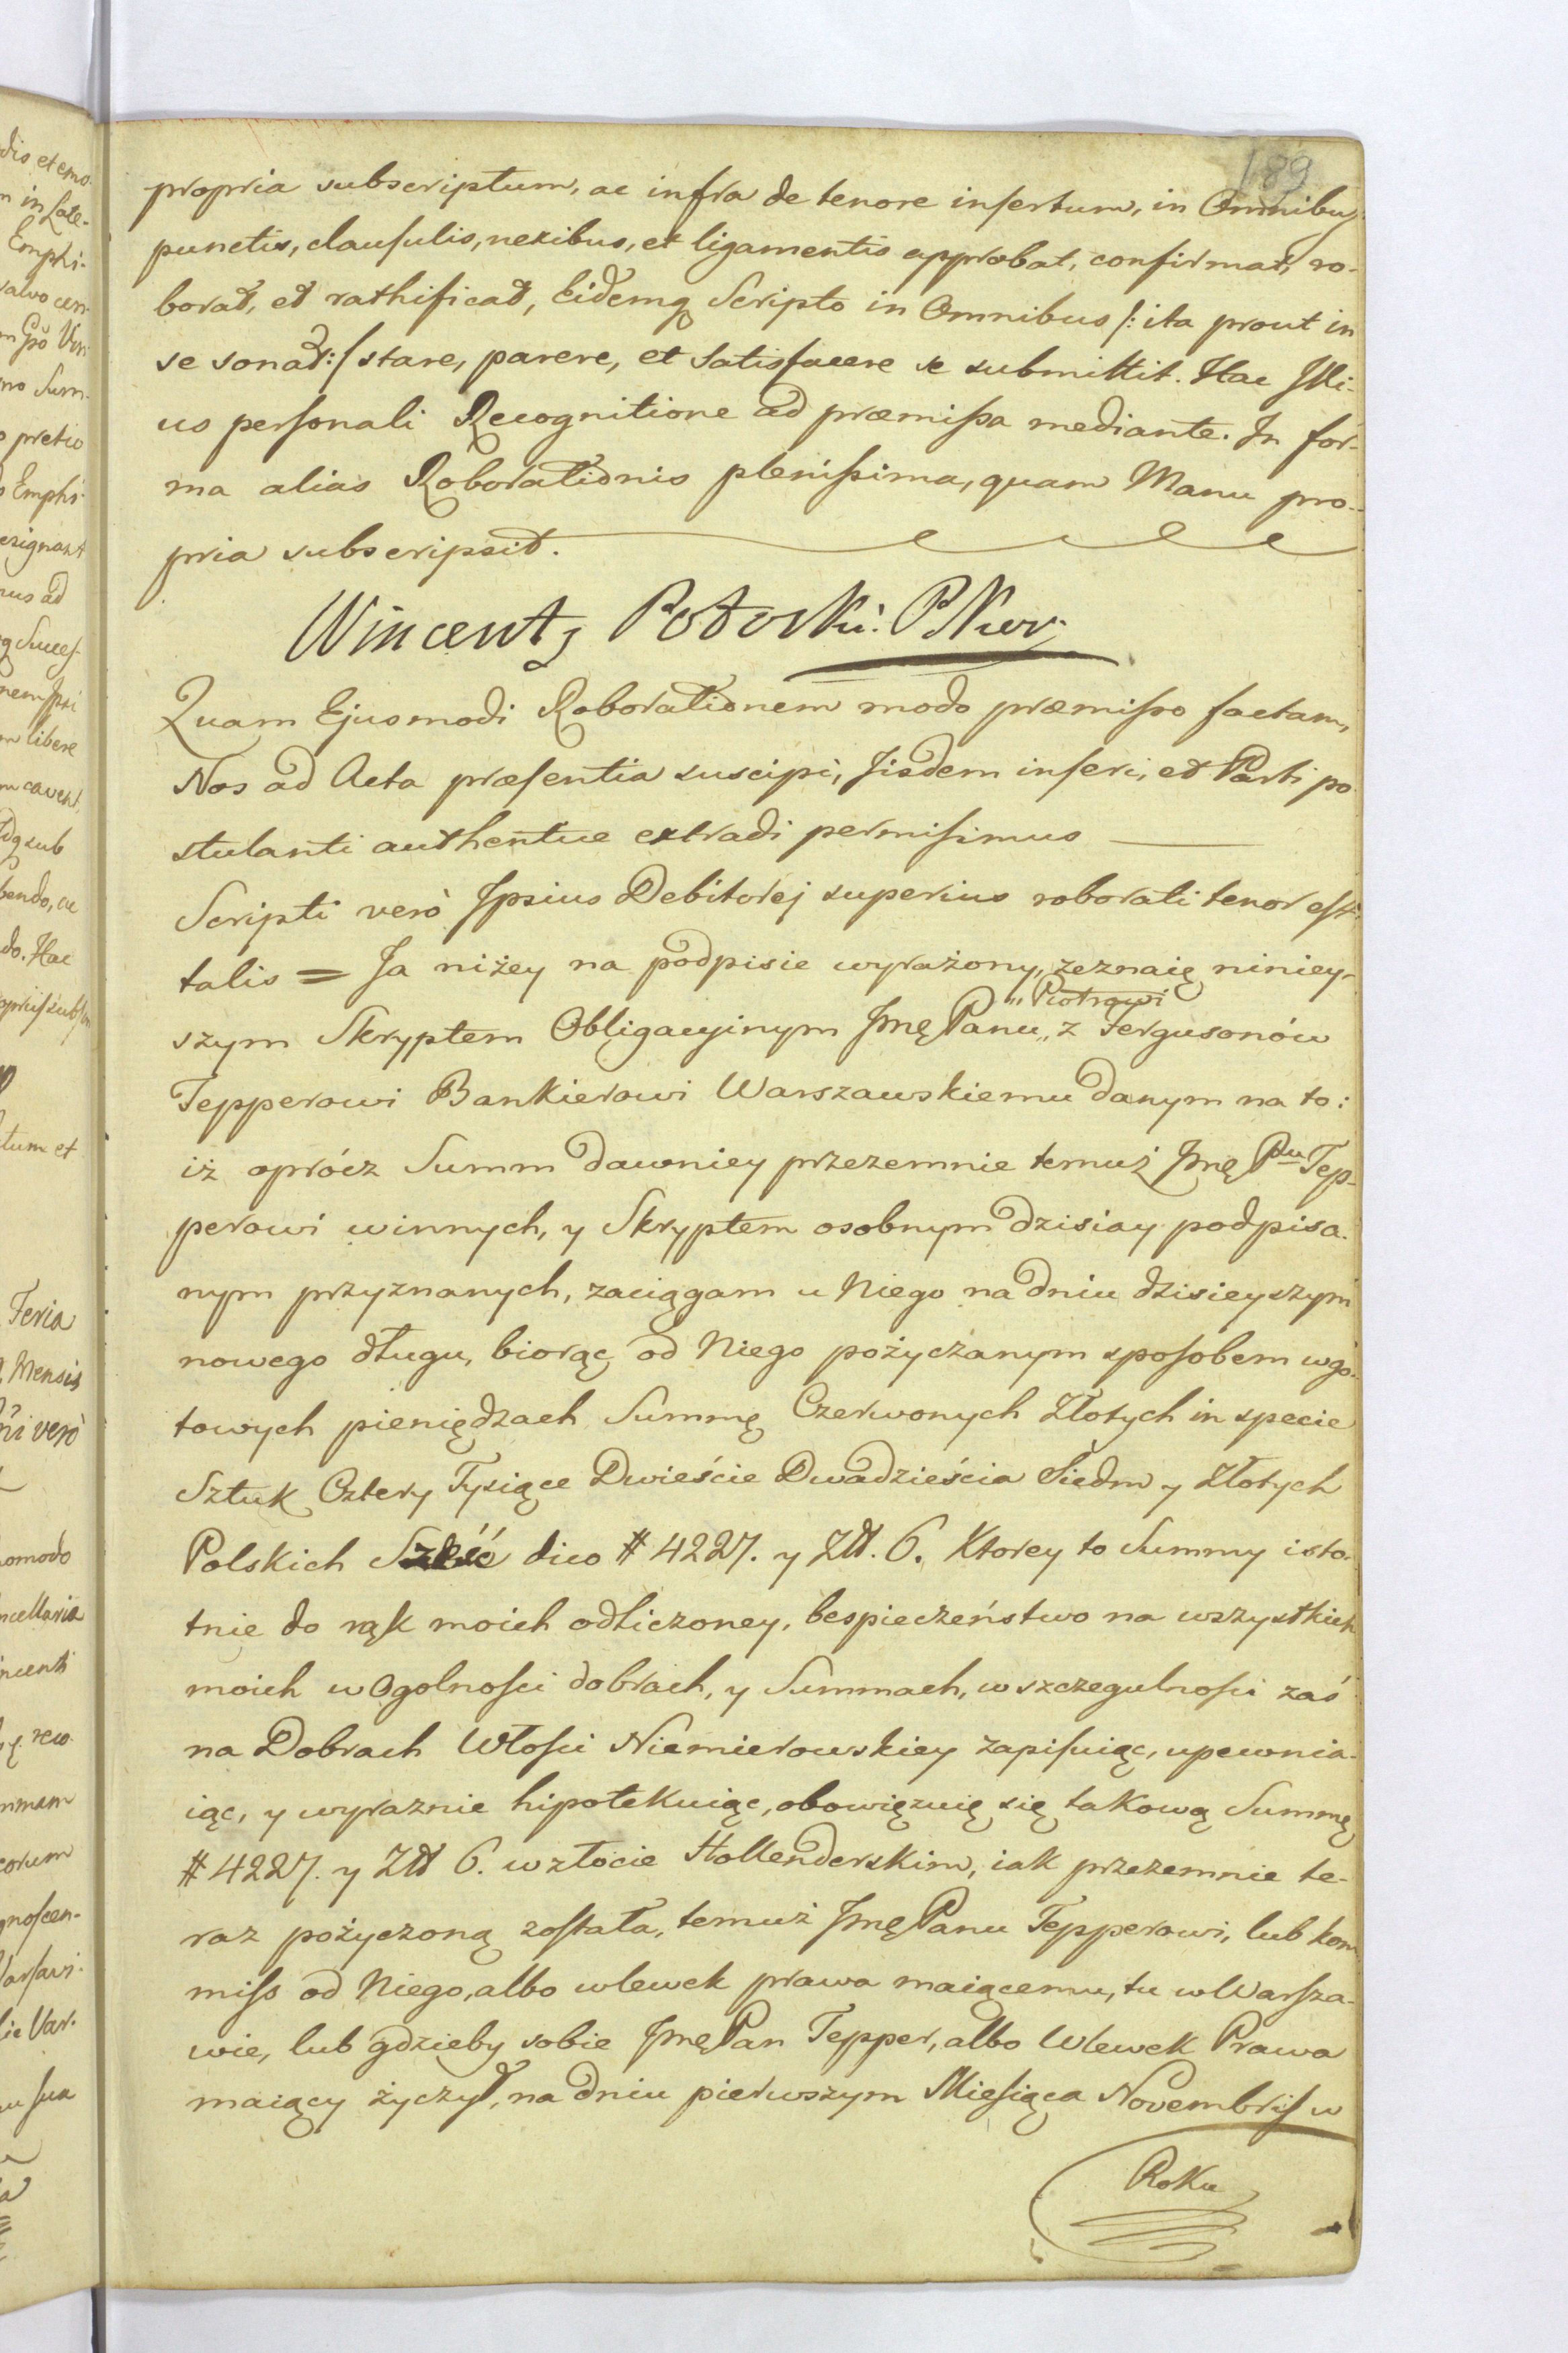 189
propria subscriptum, ac infra de tenore insertum, in Omnibus
punctis, clausulis, nexibus, et ligamentis approbat, confirmat, ro-
borat, et rathificat, Eidemq Scripto in Omnibus /: ita prout in
se sonat :/ stare, parere, et Satisfacere se submittit. Hac Illi-
us personali Recognitione ad præmissa mediante. In for-
ma alias Roborationis plenissima, quam Manu pro-
pria subscripsit.
Wincenty Potocki
Quam Ejusmodi Roborationem modo præmisso factam,
Nos ad Acta præsentia suscipi, Iisdem inseri, et Parti po
stulanti authentice extradi permisimus
Scripti verò Ipsius Debitorej superius roborati tenor est
talis = Ja niżey na podpisie wyrażony, zeznaię niniey-
szym Skryptem Obligacyinym Jmę Panu „ Piotrowi „ z Fergusonów
Tepperowi Bankierowi Warszawskiemu danym na to:
iż oprócz Summ dawniey przezemnie temuż Jmę Pnu Tep-
perowi winnych, y Skryptem osobnym dzisiay podpisa-
nym przyznanych, zaciągam u Niego na dniu dzisieyszym
nowego długu, biorąc od Niego pożyczanym sposobem w go-
towych pieniędzach Summę Czerwonych Złotych in specie
Sztuk Cztery Tysiące Dwieście Dwadzieścia Siedm y Złotych
Polskich Sześć dico # 4227. y Złł. 6. Ktorey to Summy isto-
tnie do rąk moich odliczoney, bespieczeństwo na wszystkich
moich w Ogolności dobrach, y Summach, w szczegulności zaś
na Dobrach Włości Niemierowskiey zapisuiąc, upewnia-
iąc, y wyraznie hipotekuiąc, obowięzuię się takową Summę
# 4227. y Złł 6. w złocie Hollenderskim, iak przezemnie te-
raz pożyczoną została, temuż Jmę Panu Tepperowi, lub kom
miss od Niego, albo wlewek prawa maiącemu, tu w Warsza-
wie, lub gdzieby sobie Jmę Pan Tepper, albo Wlewek Prawa
maiący życzył, na dniu pierwszym Miesiąca Novembris w
Roku